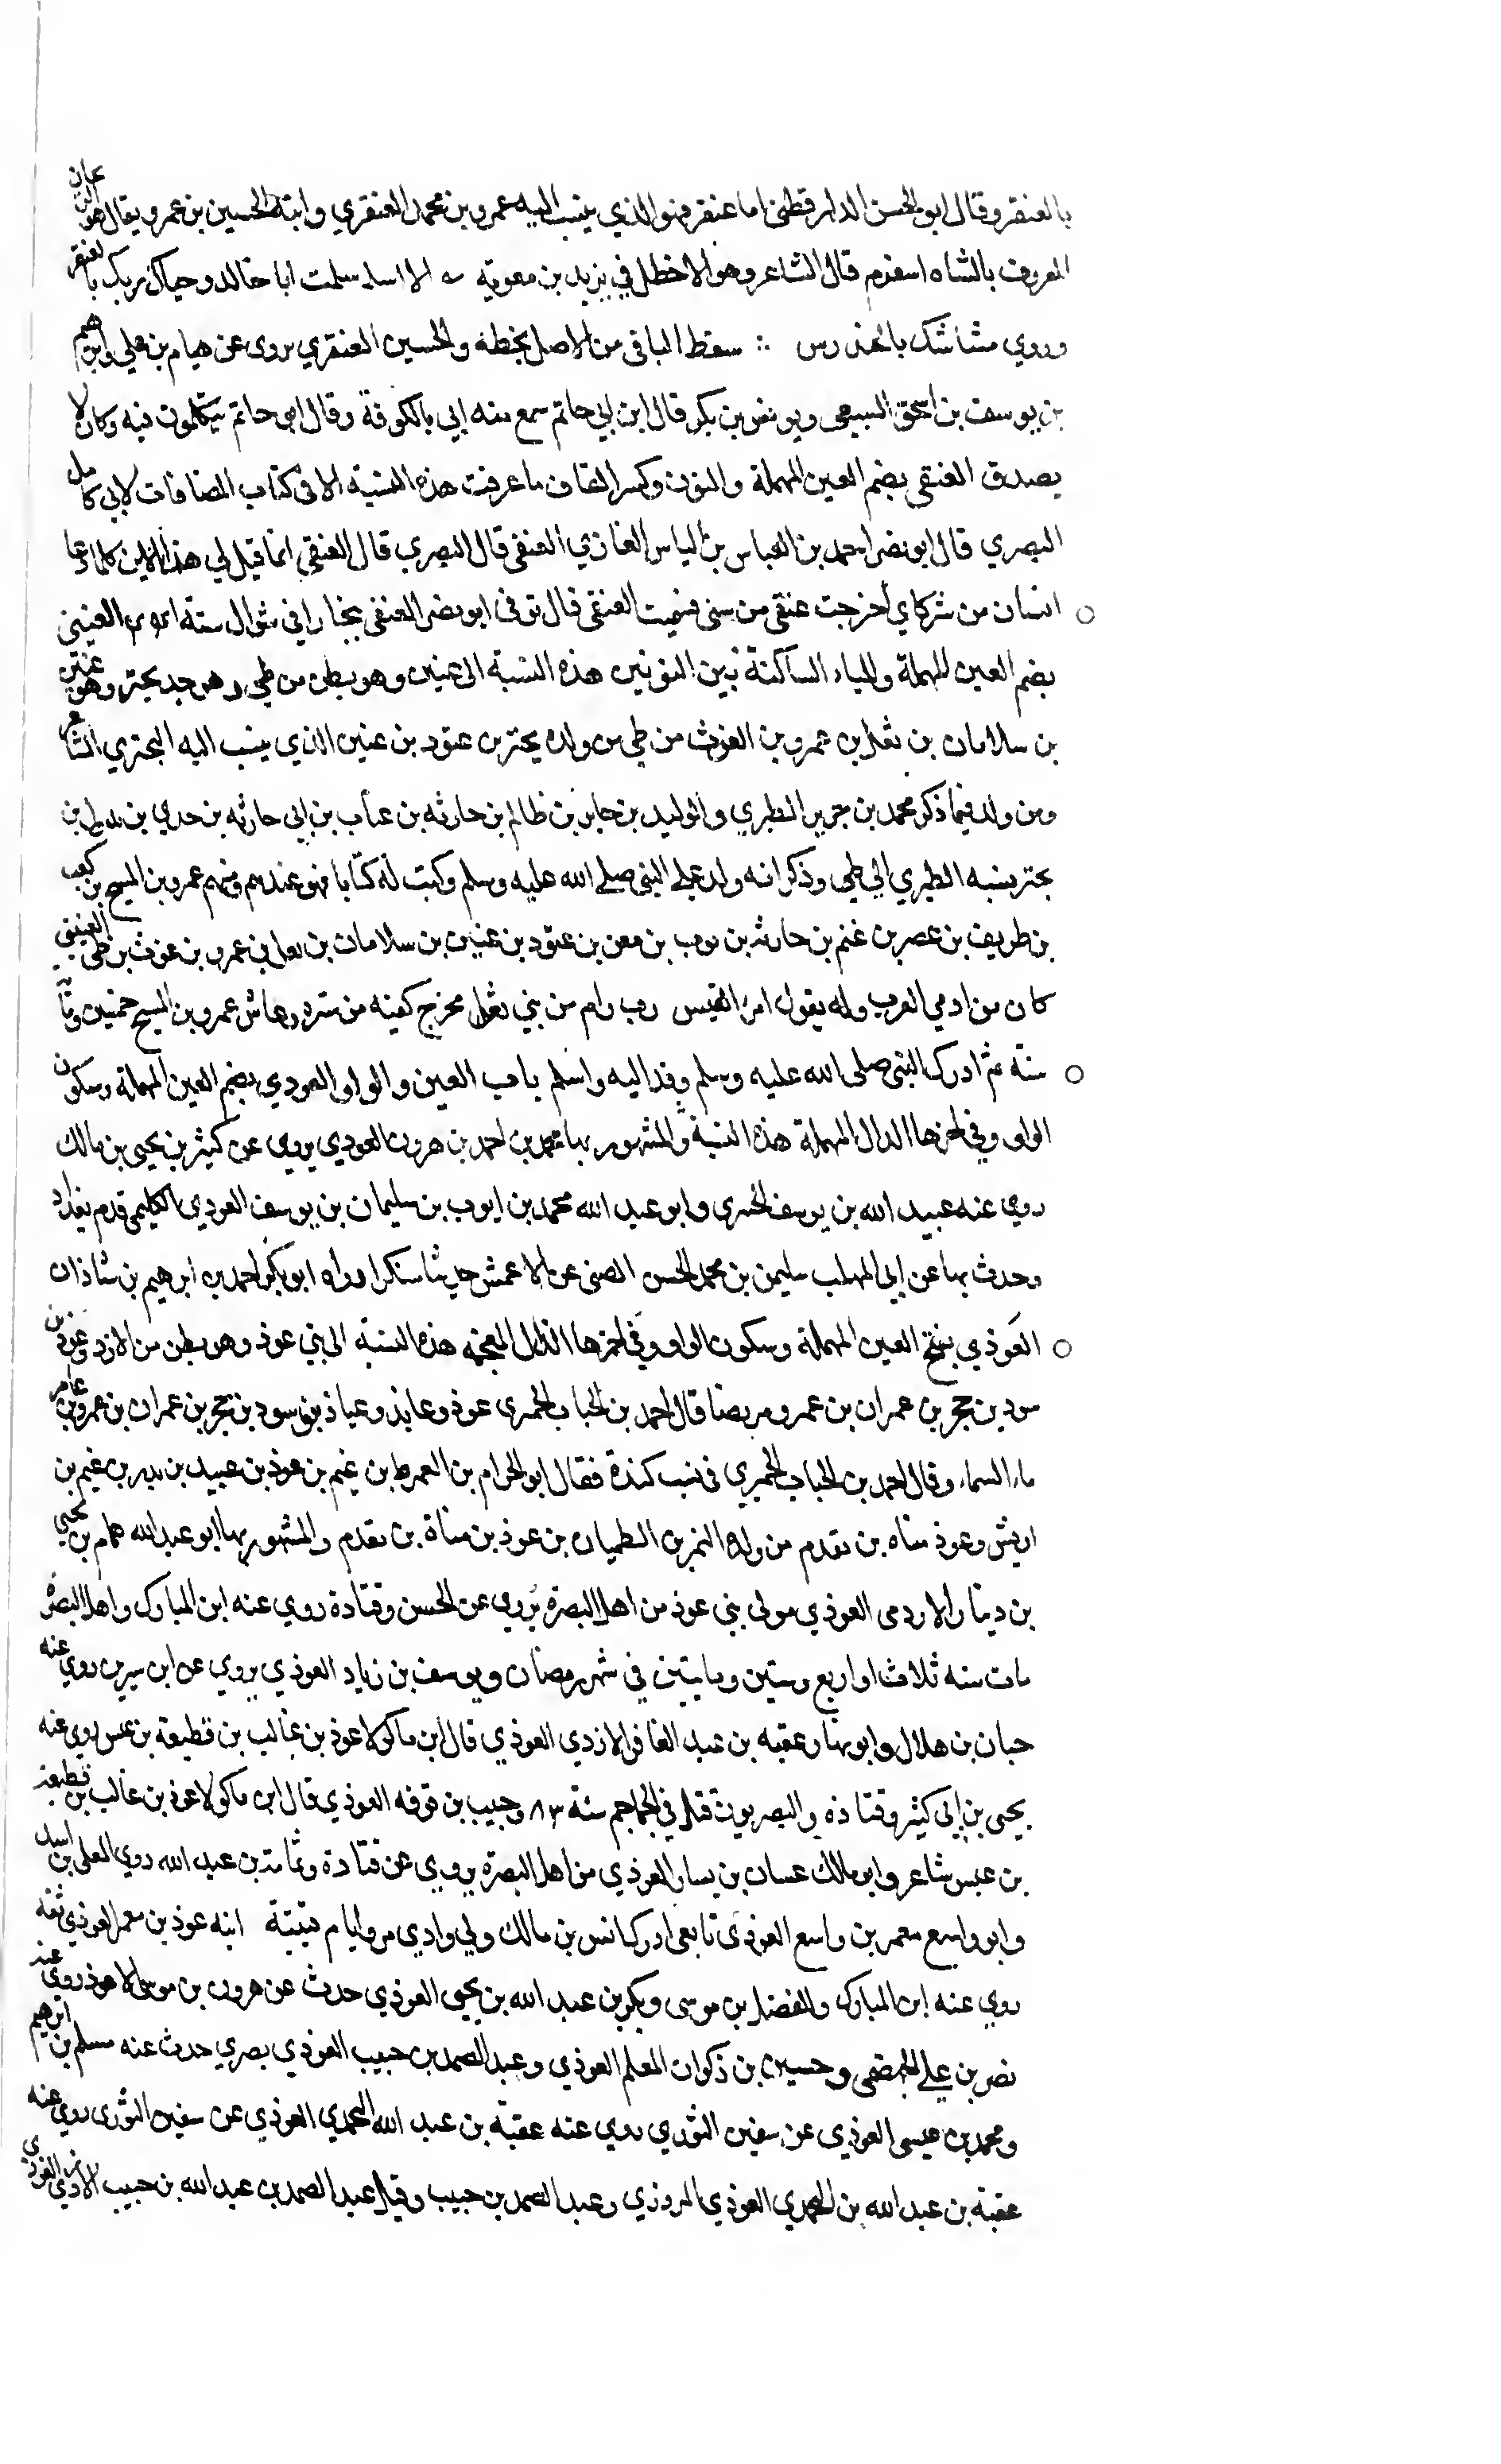 بالعنقر وقال ابو الحسن الدارقطني اما عنقر فهو الذي ينسب اليه عمرو بن محمد العنقري وابنه الحسين بن عمرو يقال هو
المعروف بالشاه اسفرم قال الشاعر وهو الاخطل في يزيد بن معوية الا اسلم سلمت ابا خالد وحياك ربك بالعنقر
وروي مشاشك بالخندرس سقط الباقي من الاصل بخطه والحسين العنقري يروي عن هيام بن علي وابرهيم
بن يوسف بن اسحق السبيعي ويونس بن بكر قال ابن ابي حاتم سمع منه ابي بالكوفة وقال ابي حاتم يتكلمون فيه وكان لا
يصدق العنقي بضم العين المهملة والنون وكسر القاف ما عرفت هذه النسبة الا في كتاب المضافات لابي كامل
البصري قال ابو نصر احمد بن العباس بن الياس الغازي العنقي قال البصري قال العنقي انما قيل لي هذا لاني كلما دعا
انسان من شركاي أخرجت عنقي من سني فسميت العنقي قال توفي ابو نصر العنقي ببخارا في شوال سنة العنيني
بضم العين المهملة والياء الساكنة بين النونين هذه النسبة الى عنين وهو بطن من طي وهو جد بحتر وهو عنين
بن سلامان بن ثعل بن عمرو بن الغوث من طي من ولده بحتر بن عتود بن عنين الذي ينسب اليه البحتري الشاعر
ومن ولده فيما ذكر محمد بن جرير الطبري والوليد بن جابر بن ظالم بن حارثه بن عتاب بن ابي حارثه بن حدي بن تدول بن
بحتر ينسبه الطبري الى طي وذكر انه وفد على النبي صلى الله عليه وسلم وكتب له كتابا فهو عندهم ومنهم عمرو بن المسيح بن كعب
بن طريف بن عصر بن غنم بن حارثه بن ثوب بن معن بن عتود بن عنين بن سلامان بن ثعل بن عمرو بن غوث بن طي العنيني
كان من ارمي العرب وله يقول امرؤ القيس رب رام من بني ثعل مخرج كفيه من ستره وعاش عمرو بن المسيح خمسين ومائة
سنة ثم ادرك النبي صلى الله عليه وسلم وفد اليه واسلم باب العين والواو العودي بضم العين المهملة وسكون
الواو وفي اخرها الدال المهملة هذه النسبة والمشهور بها محمد بن احمد بن هرون العودي يروي عن كثير بن يحيى بن مالك
روي عنه عبيد الله بن يوسف الجبيري وابو عبد الله محمد بن ايوب بن سليمان بن يوسف العودي الكليمي قدم بغداد
وحدث بها عن ابي المهلب سليمن بن محمد الحسن الصيني عن الاعمش حديثا منكرا رواه ابو بكر احمد بن ابرهيم بن شاذان
العَوذي بفتح العين المهملة وسكون الواو وفي اخرها الذال المعجمه هذه النسبة الى بني عوذ وهو بطن من الازد وعوذ بن
سود بن حجر بن عمران بن عمرو مزيقيا قال احمد بن الحباب الحميري عوذ وعايذ وعياذ بنو سود بن حجر بن عمران بن عمرو بن عامر
ماء السماء وقال احمد بن الحباب الحميري في نسب كندة فقال ابو الحرام بن العمرط بن غنم بن عوذ بن عبيد بن بدر بن غنم بن
اريش وعوذ مناه بن يقدم من ولده النمر بن الطمثان بن عوذ بن مناة بن يقدم والمشهور بها ابو عبد الله همام بن يحيى
بن دينار الازدي العوذي مولى بني عوذ من اهل البصرة يروي عن الحسن وقتادة روي عنه ابن المبارك واهل البصرة
مات سنه ثلاث او اربع وستين وماىتين في شهر رمضان ويوسف بن زياد العوذي يروي عن ابن سيرين روي عنه
حبان بن هلال وابو نهار عقبه بن عبد الغافر الازدي العوذي قال ابن ماكولا عوذ بن غالب بن قطيعة بن عبس روي عنه
يحيى بن ابي كثير وقتاده والبصريون قتل في الجماجم سنة ٨٣ وحبيب بن قرفه العوذي قال ابن ماكولا عوذ بن غالب بن قطيعة
بن عبس شاعر وابو مالك غسان بن يسار العوذي من اهل البصرة يروي عن قتادة وثمامة بن عبد الله روي المعلى بن اسد
وابو واسع معمر بن واسع العوذي تابعي ادرك انس بن مالك ولي وادي مرو ايام قتيبة ابنه عوذ بن معمر العوذي ثقه
روي عنه ابن المبارك والفضل بن موسى وبكر بن عبد الله بن يحيى العوذي حدث عن هرون بن موسى الاعور روي عنه
نصر بن علي الجهضمي وحسين بن ذكوان المعلم العوذي وعبد الصمد بن حبيب العوذي بصري حدث عنه مسلم بن ابرهيم
ومحمد بن عيسى العوذي عن سفين الثوري روي عنه عقبة بن عبد الله اليحمدي العوذي عن سفين الثوري روي عنه
عقبة بن عبد الله بن اليحمدي العوذي المروزي وعبد الصمد بن حبيب وقيل عبد الصمد بن عبد الله بن حبيب الازدي العوذي